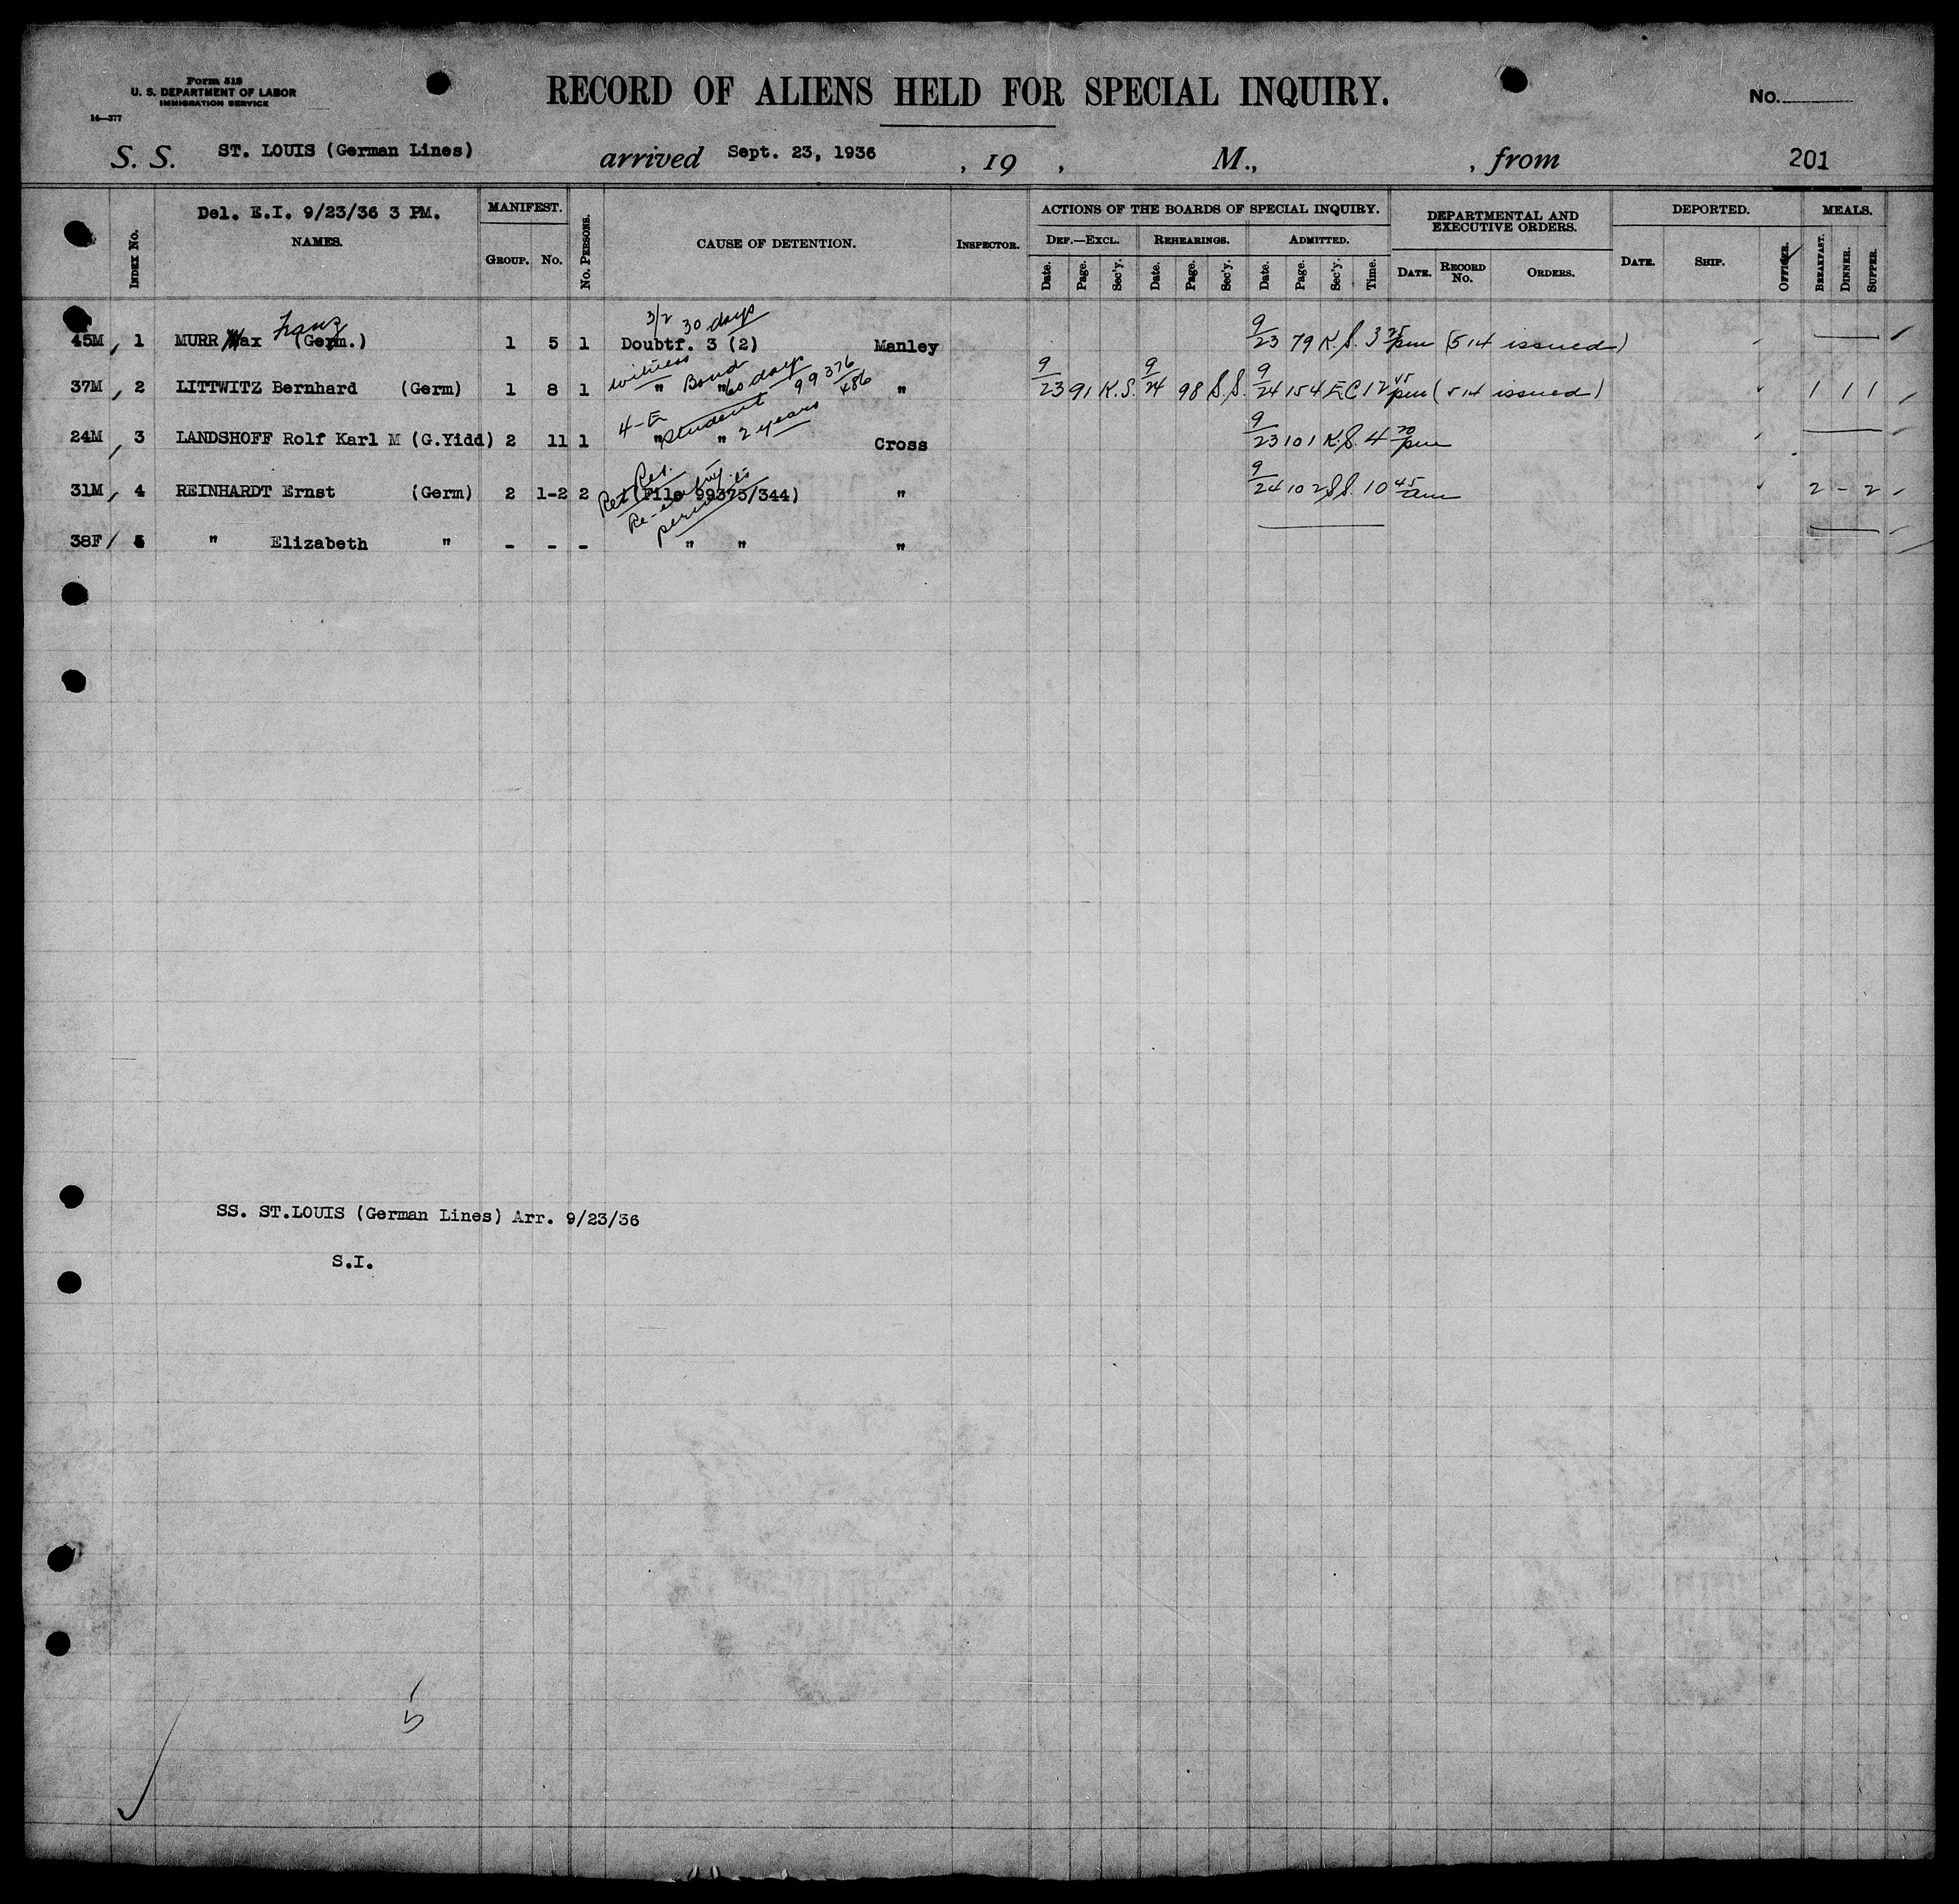 Form 518
U. S. DEPARTMENT OF LABOR
IMMIGRATION SERVICE
14—377
RECORD OF ALIENS HELD FOR SPECIAL INQUIRY.
No.
S. S. ST. LOUIS (German Lines) arrived Sept. 23, 1936 , 19 , M., , from 201
Del. E.I. 9/23/36 3 PM.
INDEX No. NAMES. MANIFEST. GROUP. No. No. PERSONS. CAUSE OF DETENTION. INSPECTOR. ACTIONS OF THE BOARDS OF SPECIAL INQUIRY. DEPARTMENTAL AND EXECUTIVE ORDERS. DEPORTED. MEALS.
DEF.—EXCL. REHEARINGS. ADMITTED.
Date. Page. Sec'y. Date. Page. Sec'y. Date. Page. Sec'y. Time. DATE. RECORD No. ORDERS. DATE. SHIP. OFFICER. BREAKFAST. DINNER. SUPPER.
Franz 3/2 30 days
45M 1 MURR Max (Germ.) 1 5 1 Doubtf. 3 (2) Manley 9/23 79 K.S. 3 25 pm (514 issued)
witness Bond 60 days 99376/486
37M 2 LITTWITZ Bernhard (Germ) 1 8 1 " " " 9/23 91 K.S. 9/24 98 S.S. 9/24 154 EC 12 45 pm (514 issued) 1 1 1
4-E student 2 years
24M 3 LANDSHOFF Rolf Karl M (G.Yidd) 2 11 1 " " Cross 9/23 101 K.S. 4 20 pm
Ret Res.
31M 4 REINHARDT Ernst (Germ) 2 1-2 2 (File 99375/344) " 9/24 102 SS. 10 45 am 2 - 2
Re-entry permits
38F 5 " Elizabeth " - - - " " "
SS. ST.LOUIS (German Lines) Arr. 9/23/36
S.I.
5